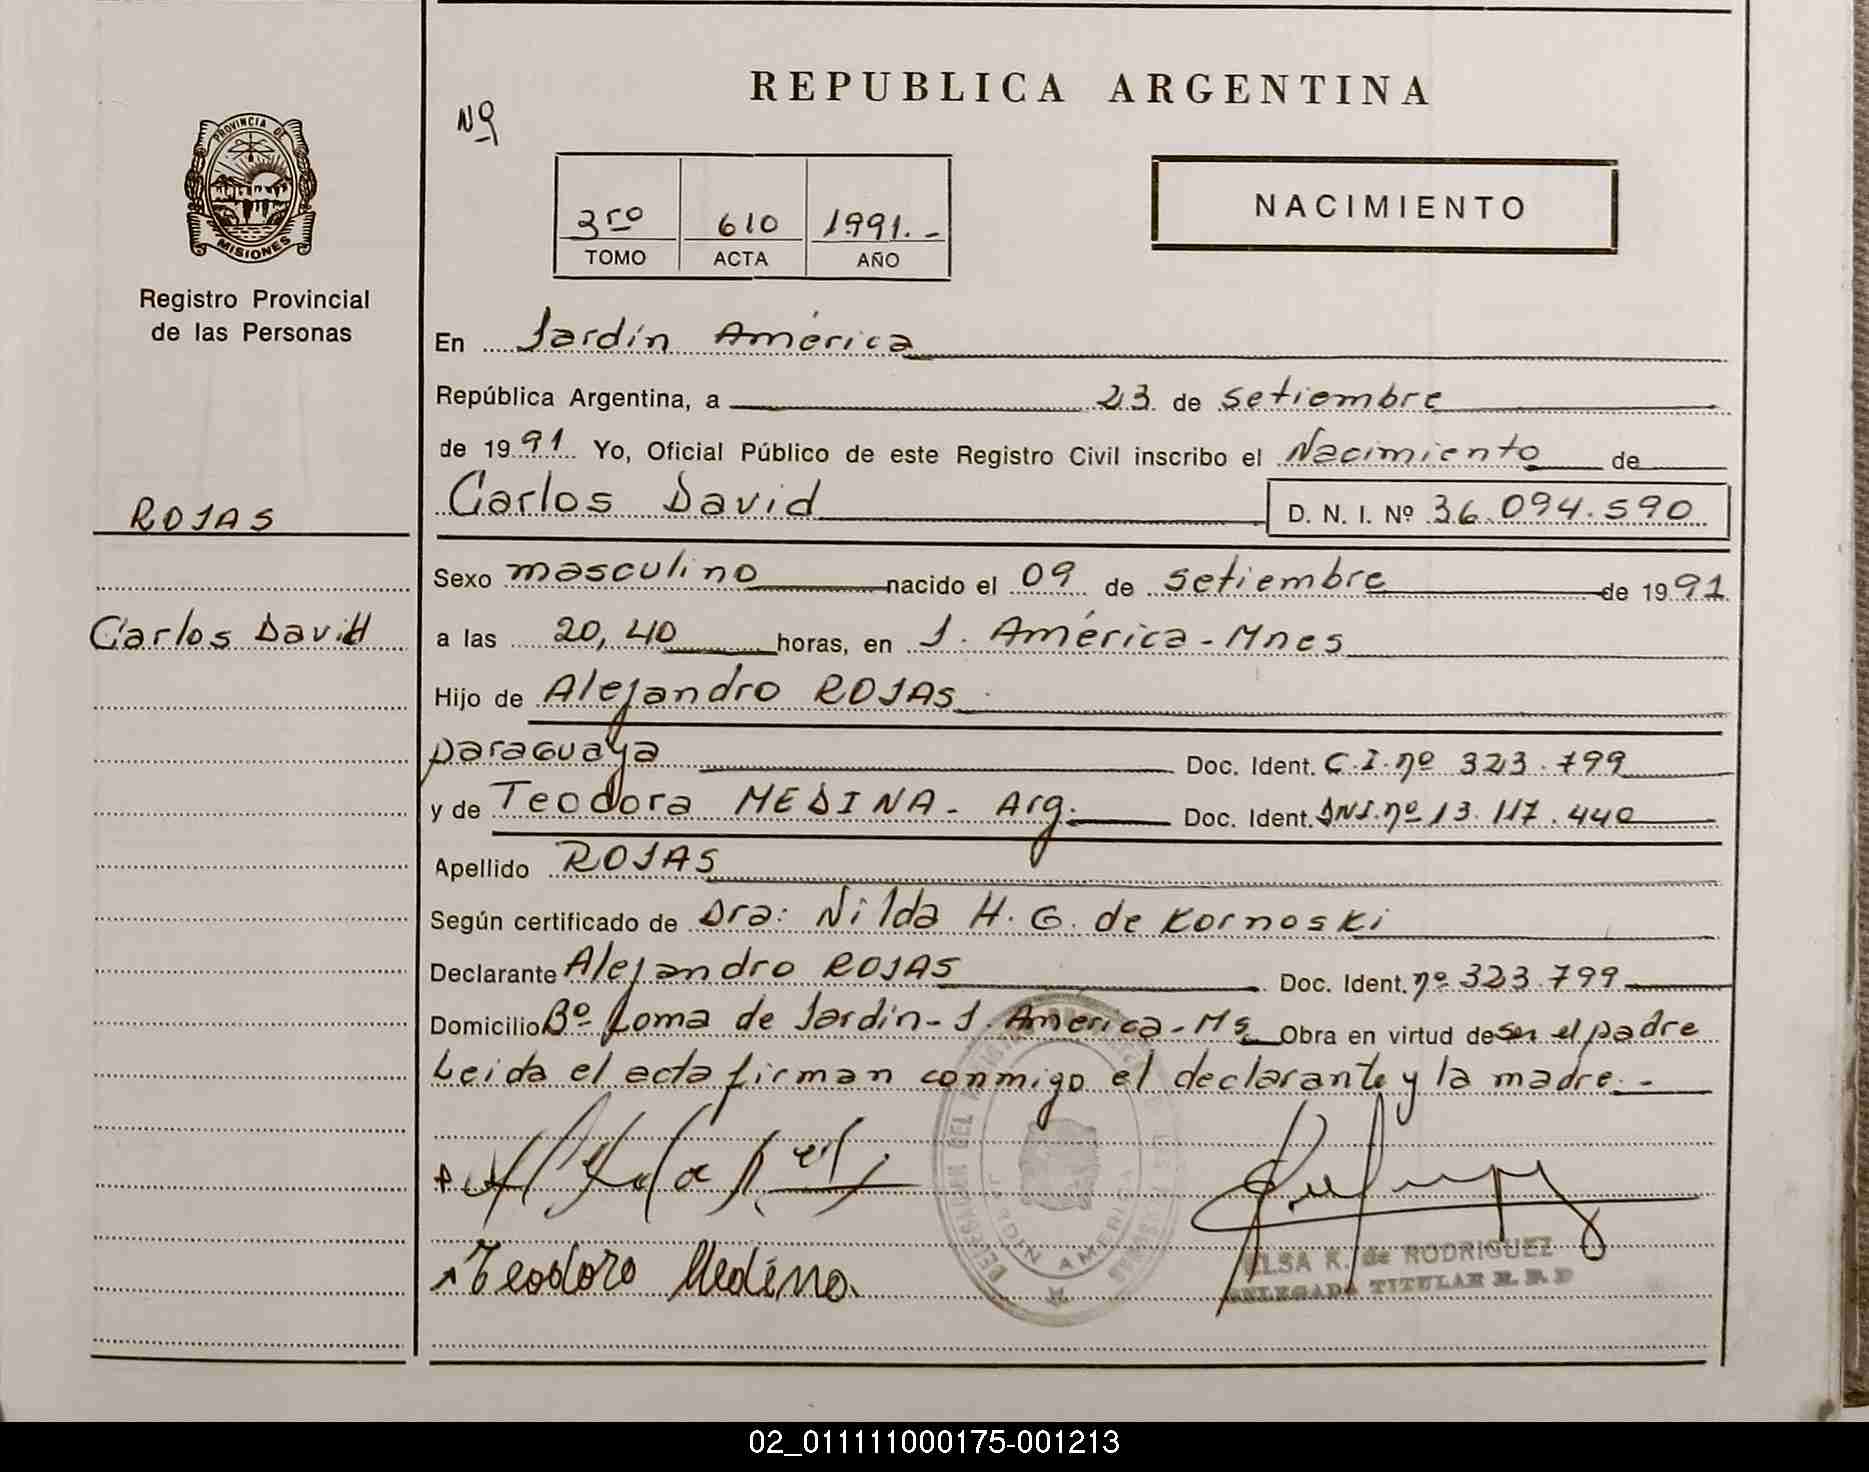 REPUBLICA ARGENTINA
Nº
PROVINCIA DE
MISIONES
Registro Provincial
de las Personas
3ro 610 1991.-
TOMO ACTA AÑO
NACIMIENTO
En Jardín América
República Argentina, a 23 de setiembre
de 1991 Yo, Oficial Público de este Registro Civil inscribo el Nacimiento de
Carlos David D. N. I. Nº 36.094.590
ROJAS
Carlos David
Sexo masculino nacido el 09 de setiembre de 1991
a las 20,40 horas, en J. América - Mnes
Hijo de Alejandro ROJAS
paraguaya Doc. Ident. C.I. nº 323.799
y de Teodora MEDINA - Arg. Doc. Ident. DNI. nº 13.117.440
Apellido ROJAS
Según certificado de Dra: Nilda H. G. de Kornoski
Declarante Alejandro ROJAS Doc. Ident. nº 323.799
Domicilio Bº Loma de Jardín - J. América - Ms Obra en virtud de ser el padre
Leida el acta firman conmigo el declarante y la madre.-
Teodoro Medina
ELSA K. de RODRIGUEZ
DELEGADA TITULAR R. P. P
JARDIN AMERICA
02_011111000175-001213